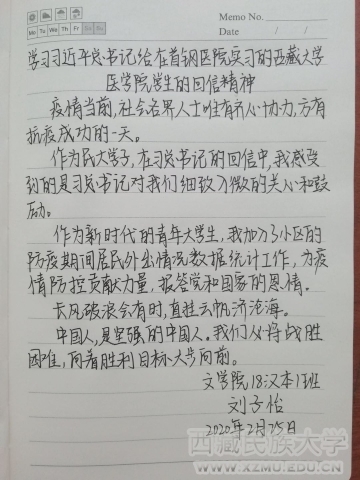 Memo No.
Mo Tu We Th Fr Sa Su
Date / /
学习习近平总书记给在首钢医院实习的西藏大学
医学院学生的回信精神
疫情当前,社会各界人士唯有齐心协力,方有
抗疫成功的一天。
作为民大学子,在习总书记的回信中,我感受
到的是习总书记对我们细致入微的关心和鼓
励。
作为新时代的青年大学生,我加入了小区的
防疫期间居民外出情况数据统计工作,为疫
情防控贡献力量,报答党和国家的恩情。
长风破浪会有时,直挂云帆济沧海。
中国人,是坚强的中国人。我们必将战胜
困难,向着胜利目标大步向前。
文学院18汉本1班
刘子怡
2020年2月25日
西藏民族大学
WWW.XZMU.EDU.CN